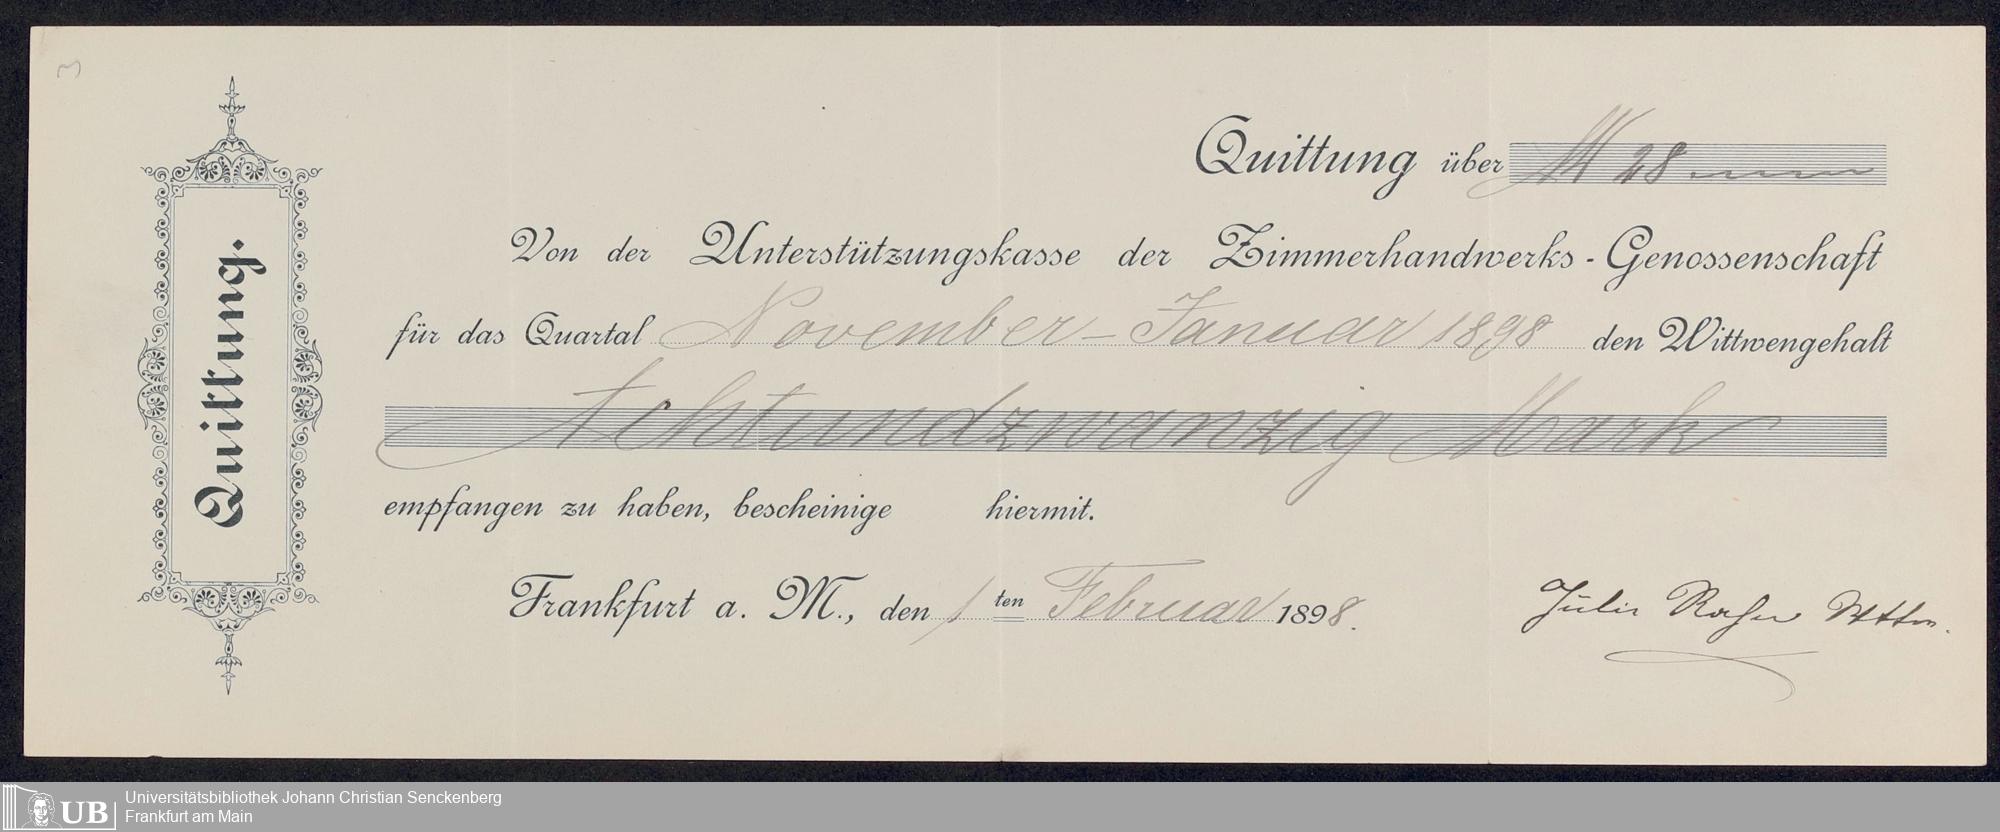 3
Quittung.
Quittung über M 28
Von der Unterstützungskasse der Zimmerhandwerks-Genossenschaft
für das Quartal November-Januar 1898 den Wittwengehalt
Achtundzwanzig Mark
empfangen zu haben, bescheinige hiermit.
Frankfurt a. M., den 1ten Februar 1898.
UB Universitätsbibliothek Johann Christian Senckenberg
Frankfurt am Main